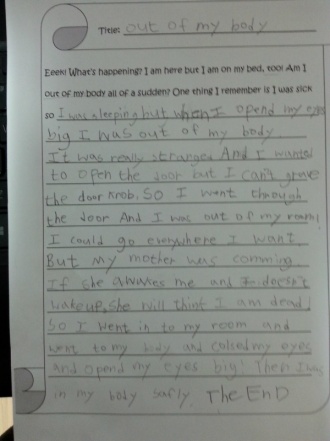 Title: out of my body
Eeek! What's happening? I am here but I am on my bed, too! Am I
out of my body all of a sudden? One thing I remember is I was sick
so I was sleeping but when I opend my eyes
big I was out of my body
It was really stranged And I wanted
to open the door but I can't grave
the door knob. SO I went through
the door And I was out of my room!
I could go everywhere I want.
But my mother was comming.
If she awakes me and I doesn't
wakeup, she will think I am dead
So I went in to my room and
went to my body and colsed my eyes
and opend my eyes big! Then I was
in my body safly. The EnD